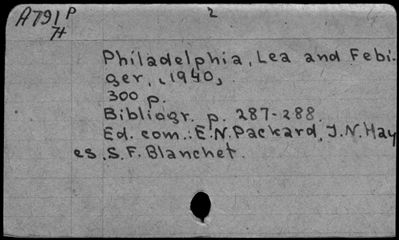 A791P 2
7t
Philadelphia, Lea and Febi-
ger, [1940],
300 p.
Bibliogr. p. 287-288.
Ed. com.: E.N.Packard, J.N.Hay
es, S.F. Blanchet.